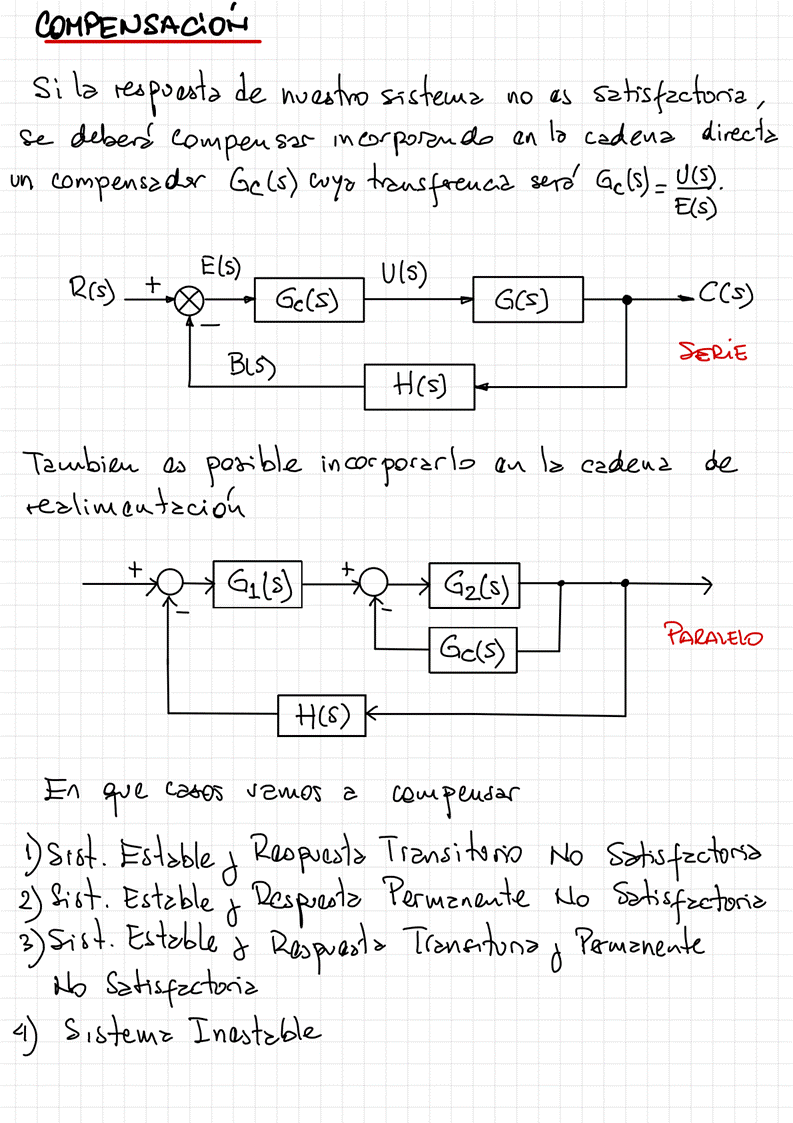 COMPENSACIÓN
Si la respuesta de nuestro sistema no es satisfactoria,
se deberá compensar incorporando en la cadena directa
un compensador Gc(s) cuya transferencia será Gc(s) = U(s)/E(s).
R(s) + E(s) Gc(s) U(s) G(s) C(s)
−
SERIE
B(s) H(s)
Tambien es posible incorporarlo en la cadena de
realimentación
+ G1(s) + G2(s)
− −
Gc(s) PARALELO
H(s)
En que casos vamos a compensar
1) Sist. Estable y Respuesta Transitorio No Satisfactoria
2) Sist. Estable y Respuesta Permanente No Satisfactoria
3) Sist. Estable y Respuesta Transitoria y Permanente
No Satisfactoria
4) Sistema Inestable